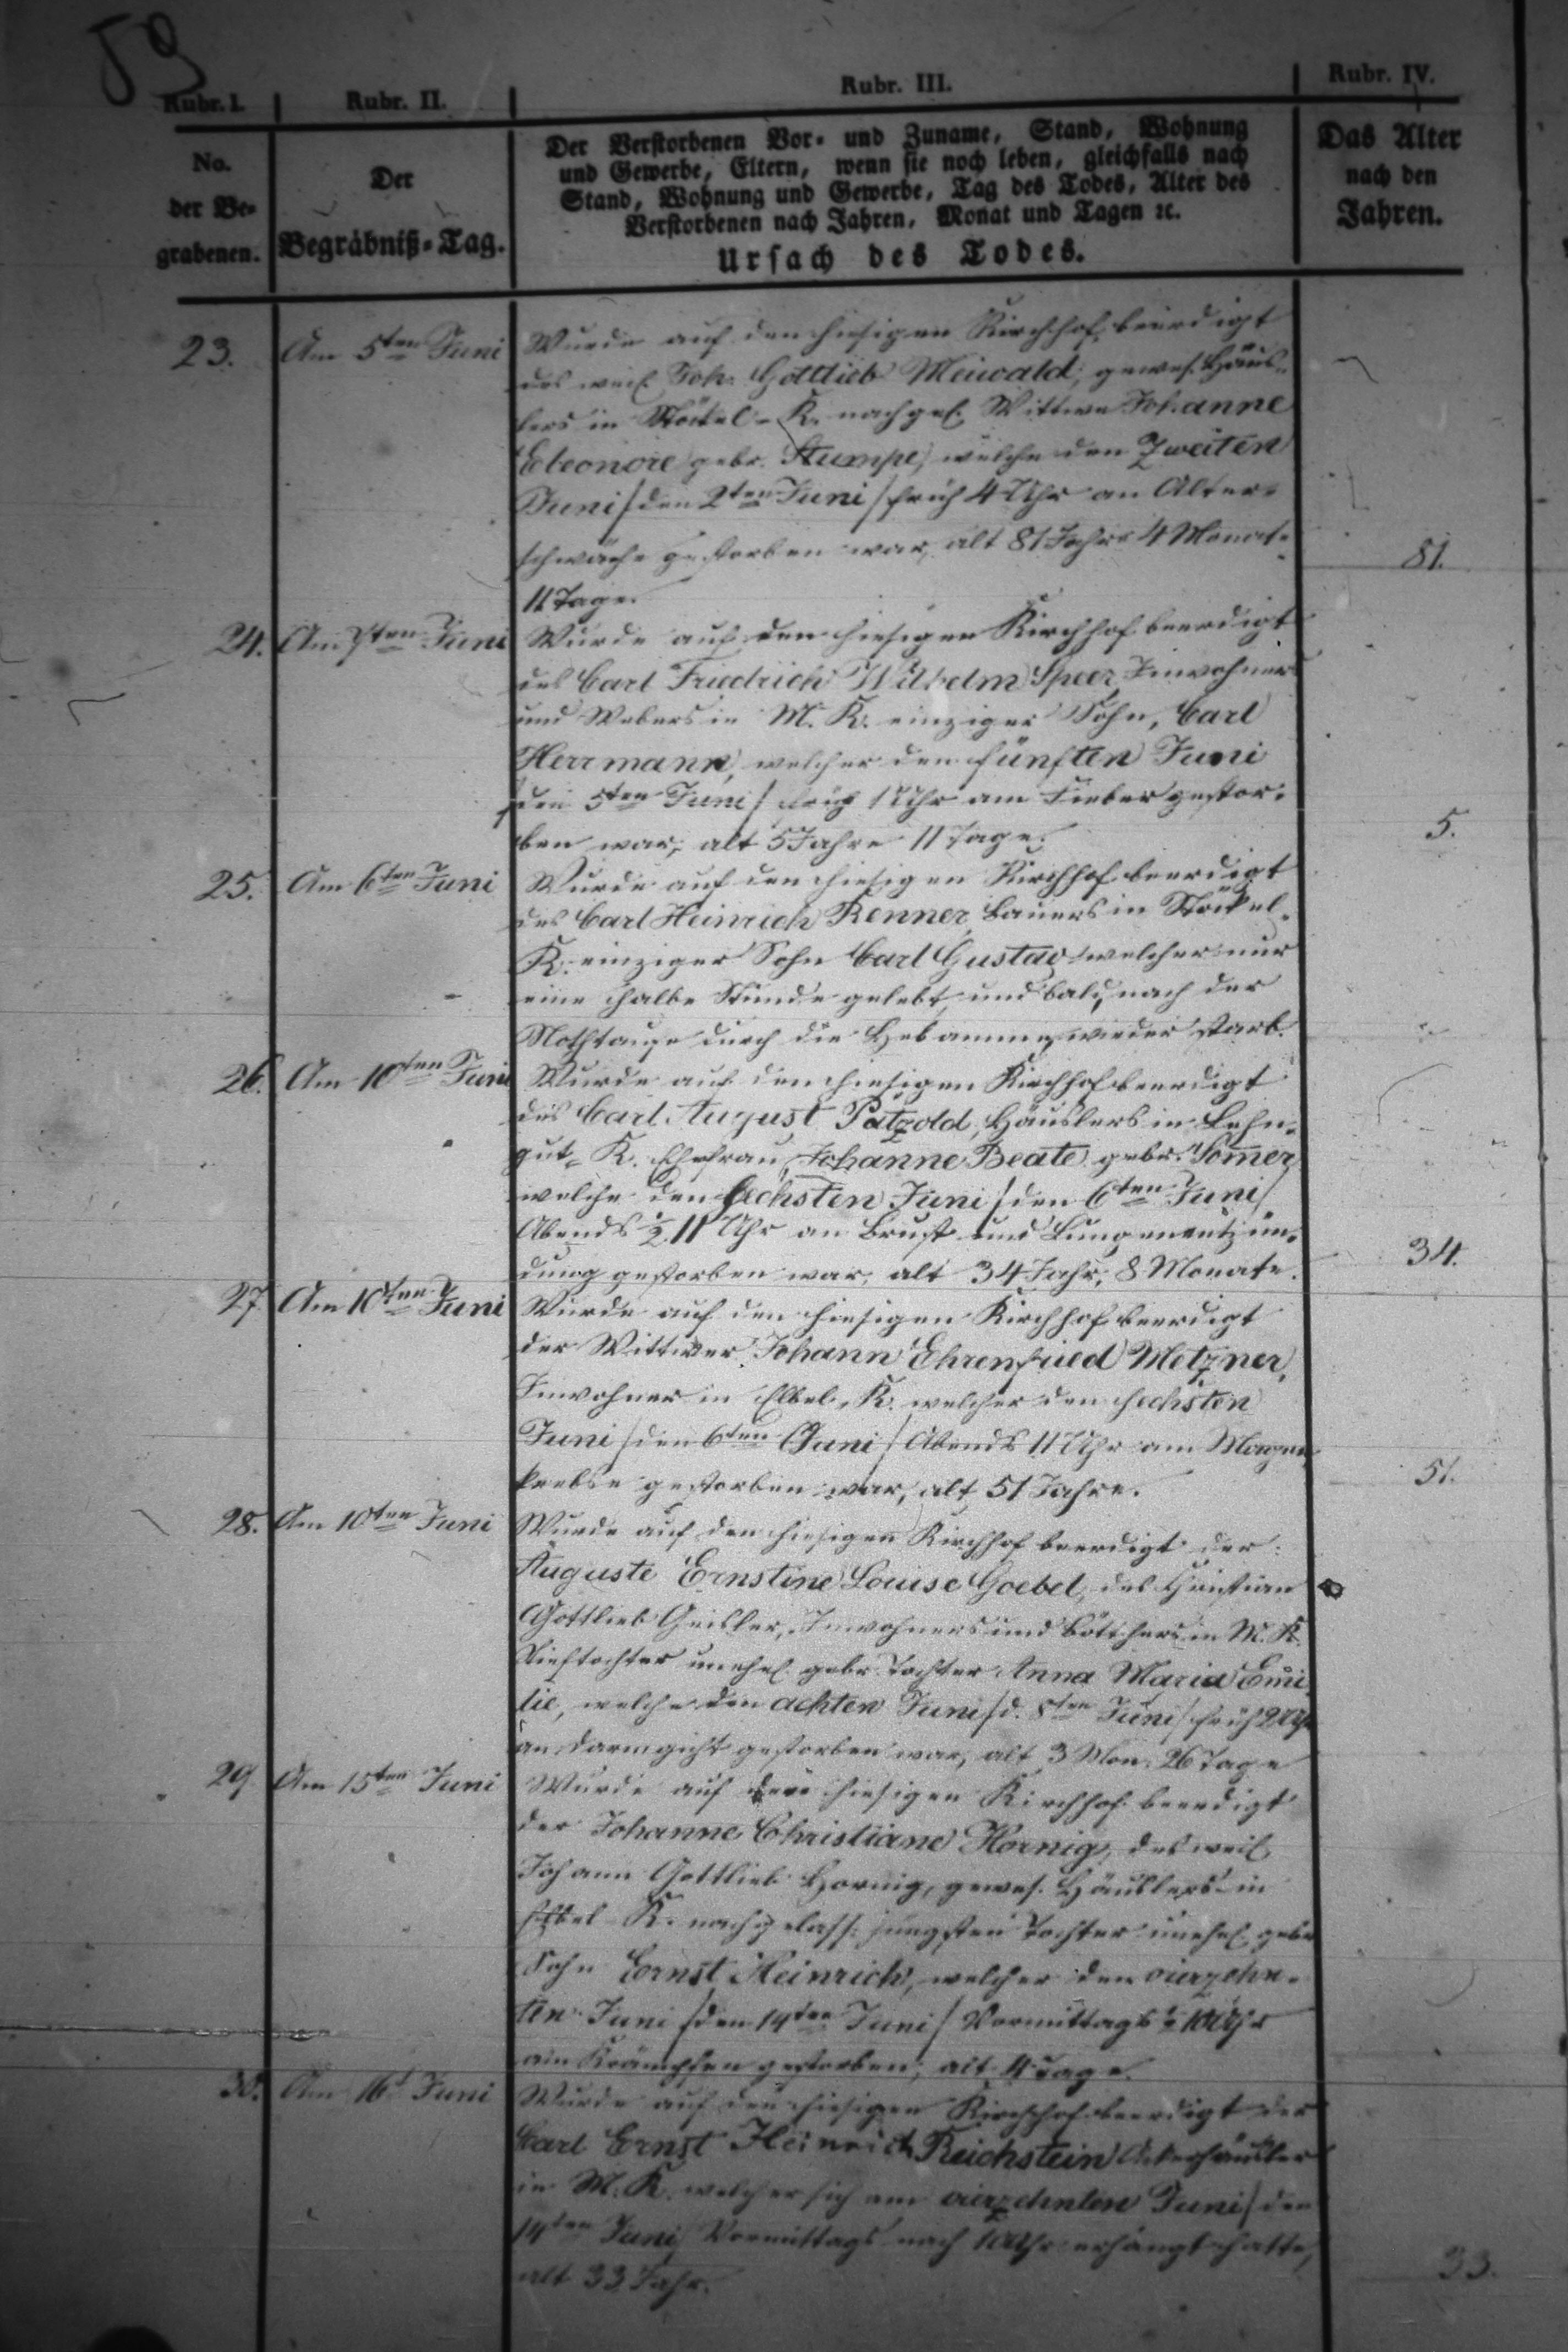 59
Rubr. I. Rubr. II. Rubr. III. Rubr. IV.
No. der Be-grabenen.
Der Begräbniß-Tag.
Der Verstorbenen Vor- und Zuname, Stand, Wohnung
und Gewerbe, Eltern, wenn sie noch leben, gleichfalls nach
Stand, Wohnung und Gewerbe, Tag des Todes, Alter des
Verstorbenen nach Jahren, Monat und Tagen ꝛc.
Ursach des Todes.
Das Alter
nach den
Jahren.
23. Am 5ten Juni Wurde auf den hiesigen Kirchhof beerdigt
des weil. Joh. Gottlieb Meiwald, gewes. Häus-
lers in Stöckel-K. nachgel. Wittwe Johanne
Eleonore gebr. Stumpe, welche den Zweiten
Juni /den 2ten Juni/ früh 4 Uhr an Alters-
schwäche gestorben war, alt 81 Jahre 4 Monate 81.
11 Tage.
24. Am 7ten Juni Wurde auf den hiesigen Kirchhof beerdigt
des Carl Friedrich Wilhelm Speer, Inwohners
und Webers in M. K. einziger Sohn, Carl
Herrmann, welcher den fünften Juni
/den 5ten Juni/ früh 1 Uhr am Fieber gestor-
ben war, alt 5 Jahre 11 Tage. 5.
25. Am 6ten Juni Wurde auf den hiesigen Kirchhof beerdigt
des Carl Heinrich Renner, Bauers in Stöckel-
K. einziger Sohn Carl Gustav welcher nur
eine halbe Stunde gelebt und bald nach der
Nothtaufe durch die Hebamme wieder starb.
26. Am 10ten Juni Wurde auf den hiesigen Kirchhof beerdigt
des Carl August Patzold, Häuslers in Lehn-
gut-K. Ehefrau, Johanne Beate gebr. Som̅er,
welche den sechsten Juni /den 6ten Juni/
Abends ½ 11 Uhr an Brust und Lungenentzün-
dung gestorben war, alt 34 Jahr, 8 Monate. 34.
27. Am 10ten Juni Wurde auf den hiesigen Kirchhof beerdigt
der Wittwer Johann Ehrenfried Metzner,
Inwohner in Elbel-K. welcher den sechsten
Juni /den 6ten Juni/ Abends 11 Uhr am Magen-
krebse gestorben war, alt 51 Jahre. 51.
28. Am 10ten Juni Wurde auf den hiesigen Kirchhof beerdigt der
Auguste Ernstine Louise Goebel, des Christian
Gottlieb Geisler, Inwohners und Böttchers in M. K.
Stieftochter unehel. gebr. Tochter Anna Maria Emi-
lie, welche den achten Juni /d. 8ten Juni/ früh 2 Uhr
an Darmgicht gestorben war, alt 3 Mon. 26 Tage
29. Am 15ten Juni Wurde auf dem hiesigen Kirchhof beerdigt
der Johanne Christiane Hornig, des weil.
Johann Gottlieb Hornig, gewes. Häuslers in
Elbel-K. nachgelass. jüngsten Tochter unehel. gebr.
Sohn Ernst Heinrich, welcher den vierzehn-
ten Juni /den 14ten Juni/ Vormittags 10 Uhr
am Krämpfen gestorben, alt 4 Tage.
30. Am 16t Juni Wurde auf den hiesigen Kirchhof beerdigt der
Carl Ernst Heinrich Reichstein Ackerhäusler
in M. K. welcher sich am vierzehnten Juni /den
14ten Juni/ Vormittags nach 10 Uhr erhängt hatte,
alt 33 Jahr. 33.